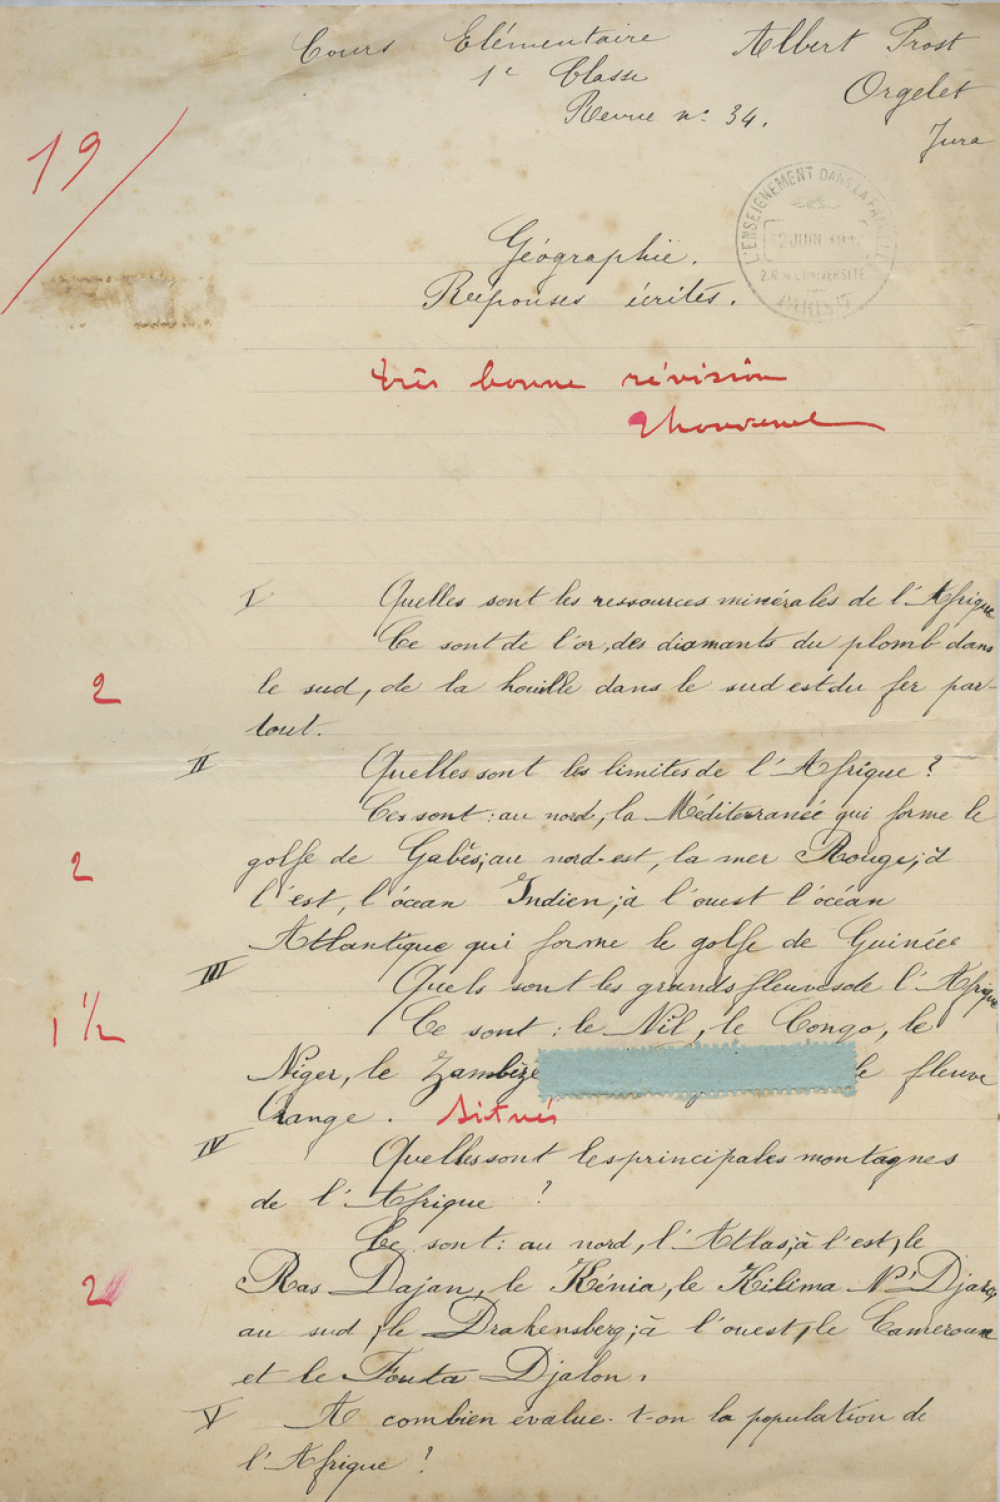 Cours Elémentaire Albert Prost
1e Classe Orgelet
Revue n: 34. Jura
19
L'ENSEIGNEMENT DANS LA FAMILLE
JUIN
2.R. DE L'UNIVERSITÉ
PARIS
Géographie.
Réponses écrites.
très bonne révision
I Quelles sont les ressources minérales de l'Afrique
Ce sont de l'or, des diamants du plomb dans
2 le sud, de la houille dans le sud est du fer par-
tout.
II Quelles sont les limites de l'Afrique?
Ces sont: au nord, la Méditerranée qui forme le
2 golfe de Gabès; au nord-est, la mer Rouge; à
l'est, l'océan Indien; à l'ouest l'océan
Atlantique qui forme le golfe de Guinée
III Quels sont les grands fleuves de l'Afrique
1 1/2 Ce sont: le Nil, le Congo, le
Niger, le Zambèze le fleuve
Orange. Situés
IV Quelles sont les principales montagnes
de l'Afrique?
Ce sont: au nord, l'Atlas; à l'est, le
2 Ras Dajan, le Kénia, le Kilima N'Djaro,
au sud, le Drakensberg; à l'ouest, le Cameroun
et le Fouta-Djalon.
V A combien évalue-t-on la population de
l'Afrique?